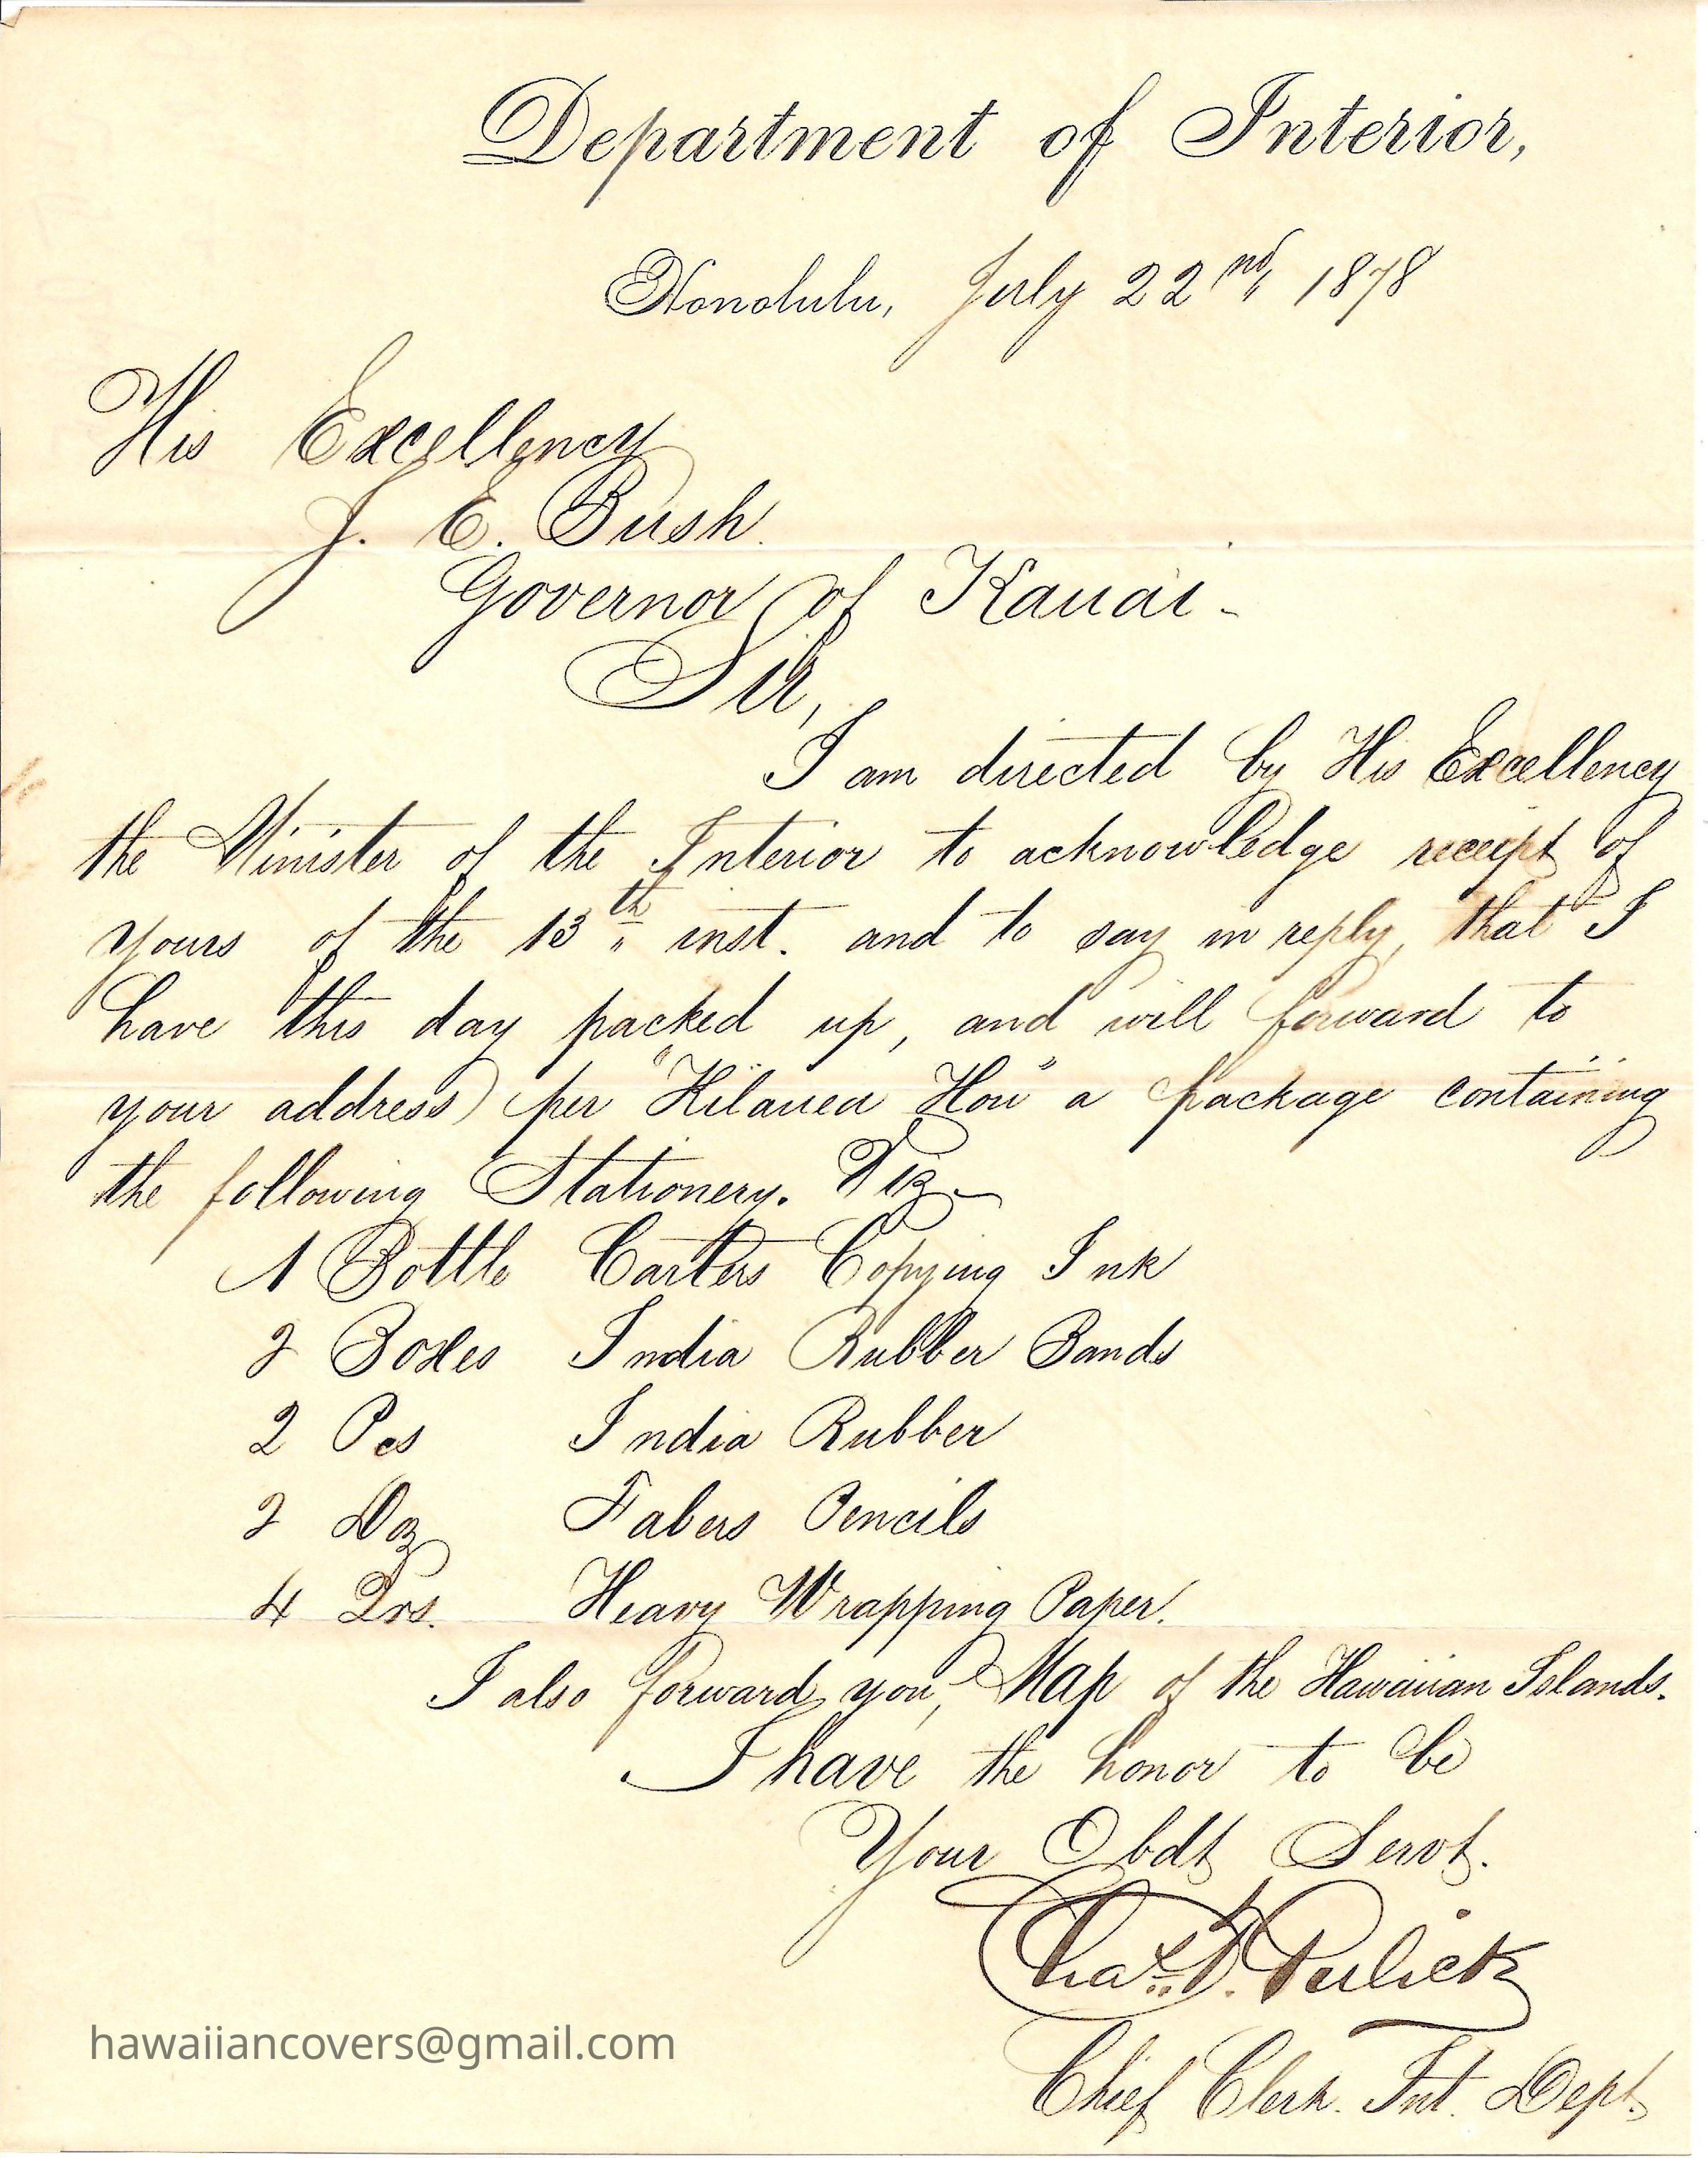 Department of Interior,
Honolulu, July 22nd, 1878
His Excellency
J. E. Bush.
Governor of Kauai -
Sir,
I am directed by His Excellency
the Minister of the Interior to acknowledge receipt of
yours of the 13th inst. and to say in reply, that I
have this day packed up, and will forward to
your address) per "Kilauea Hou" a package containing
the following Stationery. Viz -
1 Bottle Carters Copying Ink
2 Boxes India Rubber Bands
2 Pcs India Rubber
2 Doz Fabers Pencils
4 Qrs. Heavy Wrapping Paper.
I also forward you, Map of the Hawaiian Islands.
I have the honor to be
Your Obdt Servt.
Chas. T. Gulick
Chief Clerk. Int. Dept.
hawaiiancovers@gmail.com